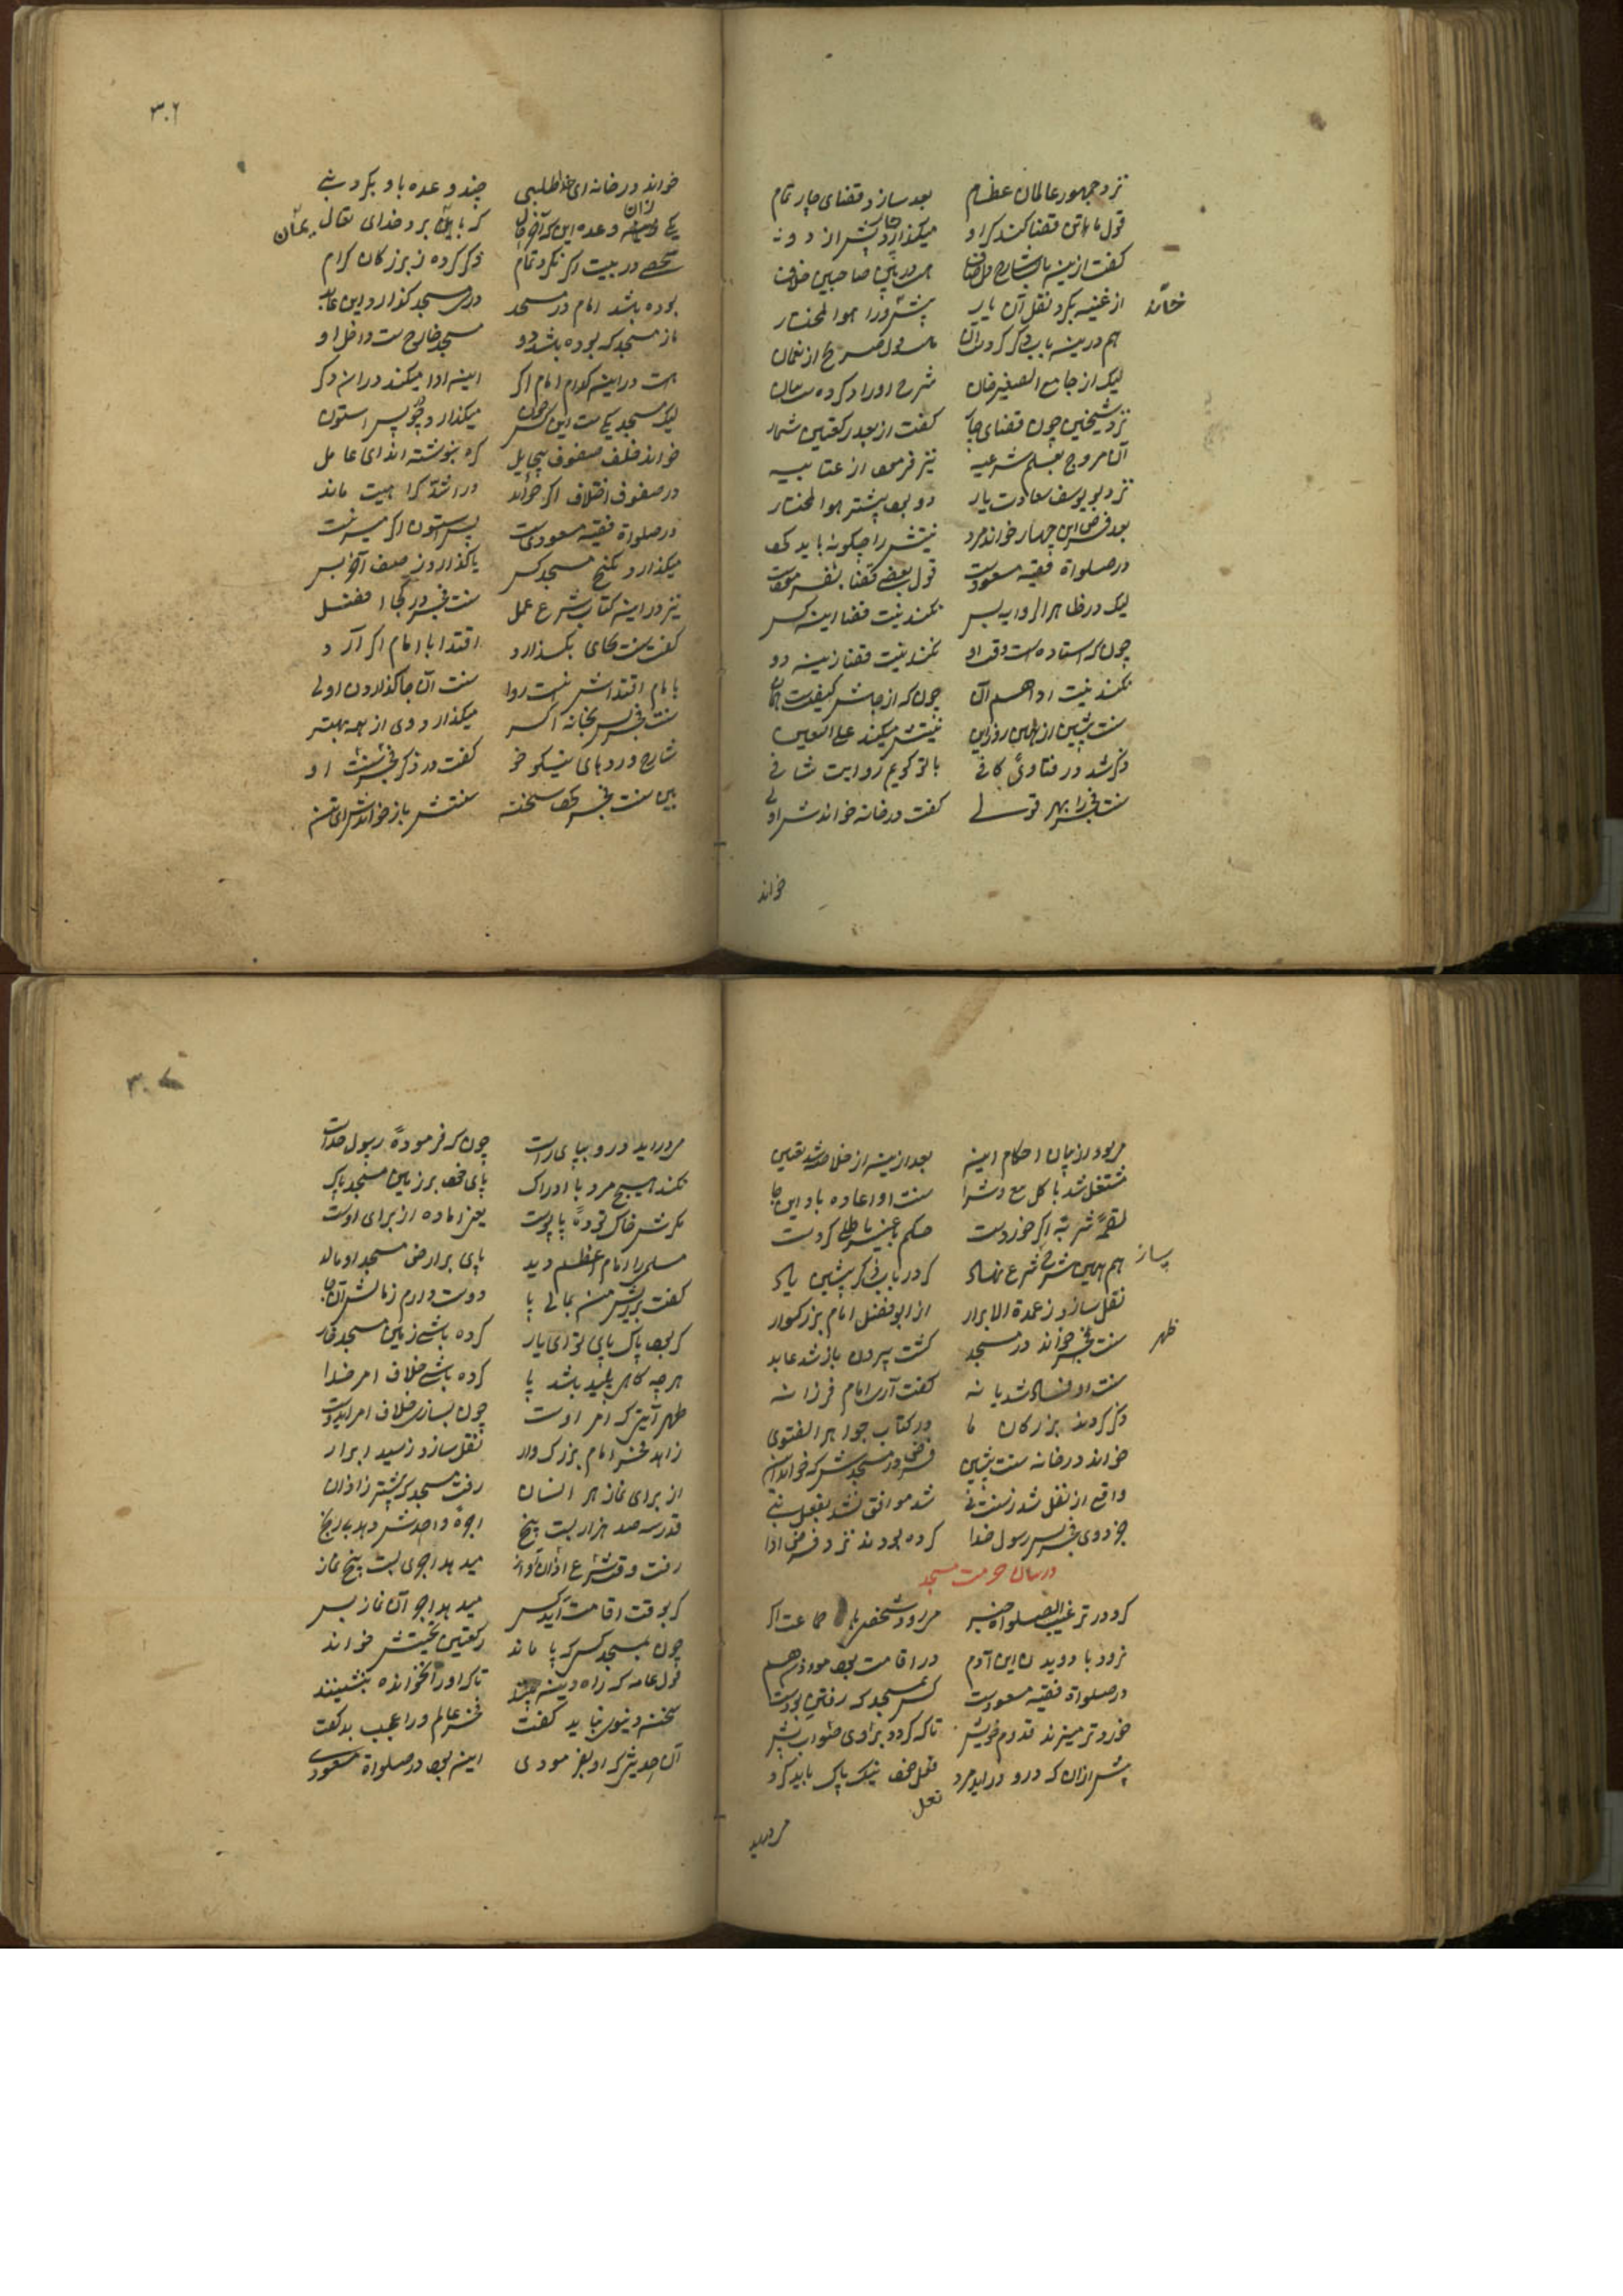 نزد جمهور عالمان عظام بعد سازد قضای چار تمام
قول ما باتن قضا کند کر او میکذارد پیشتر از دو نه
کفت ازینه باب شارح هست درین صاحبین خلاف
خانه
از غنیه بکرد نقل آن یار پیشتر ورا هوا لمختار
هم درینه باب ذکر کردست آن قول صریح از نعمان
لیک از جامع الصغیر خان شرح اوراد کرده است بیان
نزد شیخین چون قضای چار کفت از بعد رکعتین شمار
آن مروج بعلم شرعیه نیز فرمود از عتابیه
نزد بو یوسف سعادت یار دو بود پیشتر هوا لمختار
بعد فرض این چهار خواند مرد نیتش را چکونه باید کرد
در صلواة فقیه مسعودست قول بعضی قضا
لیک در ظاهر الروایه بسر نکند نیت قضا اینه کسر
چون که استاده است وقت او نکند نیت قضا زینه دو
نکند نیت ادا هم آن چون که از جاش کیفیت
سنت پیشین از همین روز این نیتش میکند علی التعیین
ذکر شد در فتاوی کافی با تو کویم روایت شافی
سنت فجر را بهر قولی کفت در خانه خواندنش اولی
خواند
۳۰۶
خواند در خانه ای خدا طلبی چند وعده باو بکرد نبی
زان
یکی وعده این که آخر کار که با یمان برد خدای تعال
یمان
شخصی در بیت اکر نکرد تمام ذکر کرده ز بزرکان کرام
بوده باشد امام در مسجد در مسجد کذارد این عابد
باز مسجد که بوده باشد دو مسجد خارج ست و داخل او
هست در اینه کدام امام اکر اینه ادا میکند در ان دکر
لیک مسجد یکی ست این کسر چون میکذارد پس استون
خواند خلف صفوف بی حایل که بنوشته اند ای عامل
در صفوف اختلاف اکر خواند در اشد کراهیت ماند
در صلواة فقیه مسعودی ست پس استون اکر میسر نیست
میکذارد بکنج مسجد کسر یا کذارد ز صف آخر بسر
نیز در اینه کتاب شرع عمل سنت فجر در کجا افضل
کفت سنت بجای بکذارد اقتدا با امام اکر آرد
با امام اقتداش نیست روا سنت آن جا کذاردن اولی
سنت فجر بخانه اکسر میکذارد وی از همه بهتر
شارح وردهای نیکو خو کفت در ذکر فجر سنت او
بین سنت فجر کفت سخنه سنتش باز خواند
مرود از بیان احکام اینه بعد ازینه از خلاصه شد تعیین
مشتغل شد باکل بیع و شرا سنت او اعاده باد این جا
لقمه شربه اکر خوردست حکم باطلی کردست
پساز
هم همین شرح شرع نهاد که در باب ذکر پیشین یاد
نقل سازد ز عمدة الابرار از ابو فضل امام بزرکوار
ظهر
سنت فجر خواند در مسجد کشت بیرون باز شد عابد
سنت او فساد شد یا نه کفت آری امام فرزانه
ذکر کردند بزرکان ما در کتاب جواهر الفتوی
خواند در خانه سنت پیشین فرض در مسجدش که خواند
واقع از نقل شد ز سنت نی شد موافق نشد بفعل نبی
جز دوی فجر پس رسول خدا کرده بودند نزد فرض ادا
در بیان حرمت مسجد
که در ترغیب الصلواة خبر مرود شخص با جماعت اکر
نزود با دویدن این آدم در اقامت بود موذن هم
در صلواة فقیه مسعودست کسر بمسجد که رفتنی بودست
خورد تر میزند قدوم خویش تاکه کردد برای ثواب بیش
پیش ازان که درو دراید مرد نعل خود نیک پاک باید کرد
نعل
مردراید
۳۰۷
مردراید درو بپای راست چون که فرموده رسول خداست
نکند هیچ مرد با ادراک پای خود بر زمین مسجد پاک
مکرش خاک توده یا پوست یعنی اماده از برای اوست
مسلمی را امام اعظم دید پای بر ارض مسجد او مالید
کفت بر ریش من بمالی پا دوست دارم زمالش آن جا
که بود پاک پای تو ای یار کرده باشی زمین مسجد
هر چه کاهی پلید باشد پا کرده باشی خلاف امر خدا
طهر آیتی که امر اوست چون بسازی خلاف امر ای دوست
زاهد فخر امام بزرکوار نقل سازد ز سید ابرار
از برای نماز هر انسان رفت مسجد که پیشتر ز اذان
قدر سه صد هزار بیست پنج اجوه واجدش دهد بی رنج
رفت وقت شرع اذان کو باز میدهد اجوی بیست پنج نماز
که بوقت اقامت آید کسر میدهد اجر آن نماز بسر
چون بمسجد کسر که پا ماند رکعتین تحیتش خواند
قول عامه که راه دینه بینند تاکه اورا نخوانده ننشینند
سخنه دنیوی نباید کفت فخر عالم ورا عجیب بد کفت
آن حدیثی که او بفرمودی اینه بود در صلواة مسعودی